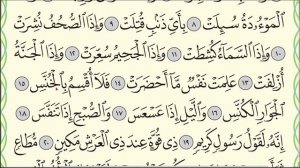 ٱلْمَوْءُۥدَةُ سُئِلَتْ ٨ بِأَىِّ ذَنۢبٍ قُتِلَتْ ٩ وَإِذَا ٱلصُّحُفُ نُشِرَتْ
١٠ وَإِذَا ٱلسَّمَآءُ كُشِطَتْ ١١ وَإِذَا ٱلْجَحِيمُ سُعِّرَتْ ١٢ وَإِذَا ٱلْجَنَّةُ
أُزْلِفَتْ ١٣ عَلِمَتْ نَفْسٌ مَّآ أَحْضَرَتْ ١٤ فَلَآ أُقْسِمُ بِٱلْخُنَّسِ ١٥
ٱلْجَوَارِ ٱلْكُنَّسِ ١٦ وَٱلَّيْلِ إِذَا عَسْعَسَ ١٧ وَٱلصُّبْحِ إِذَا تَنَفَّسَ ١٨
إِنَّهُۥ لَقَوْلُ رَسُولٍ كَرِيمٍ ١٩ ذِى قُوَّةٍ عِندَ ذِى ٱلْعَرْشِ مَكِينٍ ٢٠ مُّطَاعٍ